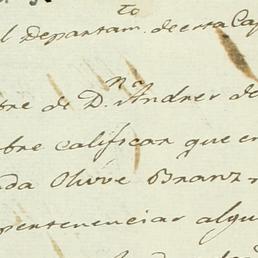 to
l Departam. de esta Cap
n.a
bre de D. Andres de
bre calificar que en
da Olivve Branz
pertenencias algu